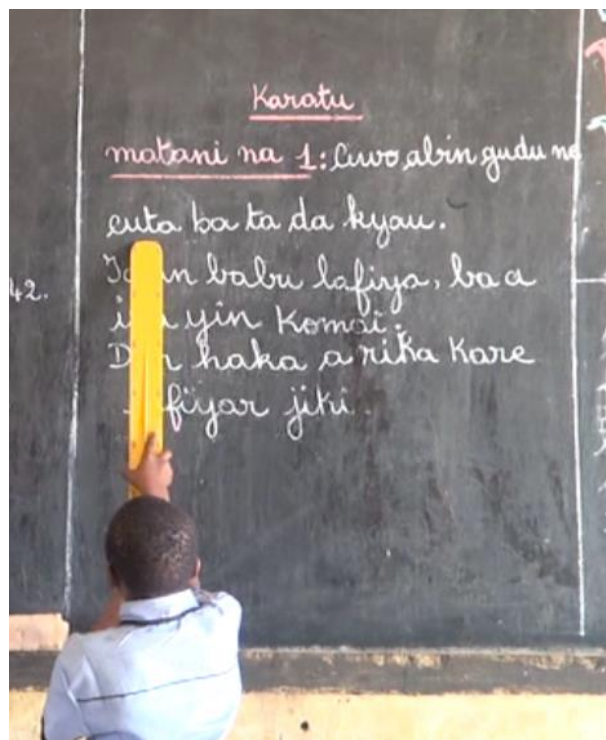 Karatu
matani na 1: Ciwo abin gudu ne
cuta ba ta da kyau.
in babu lafiya, ba a
yin komai.
haka a rika kare
fiyar jiki.
42.